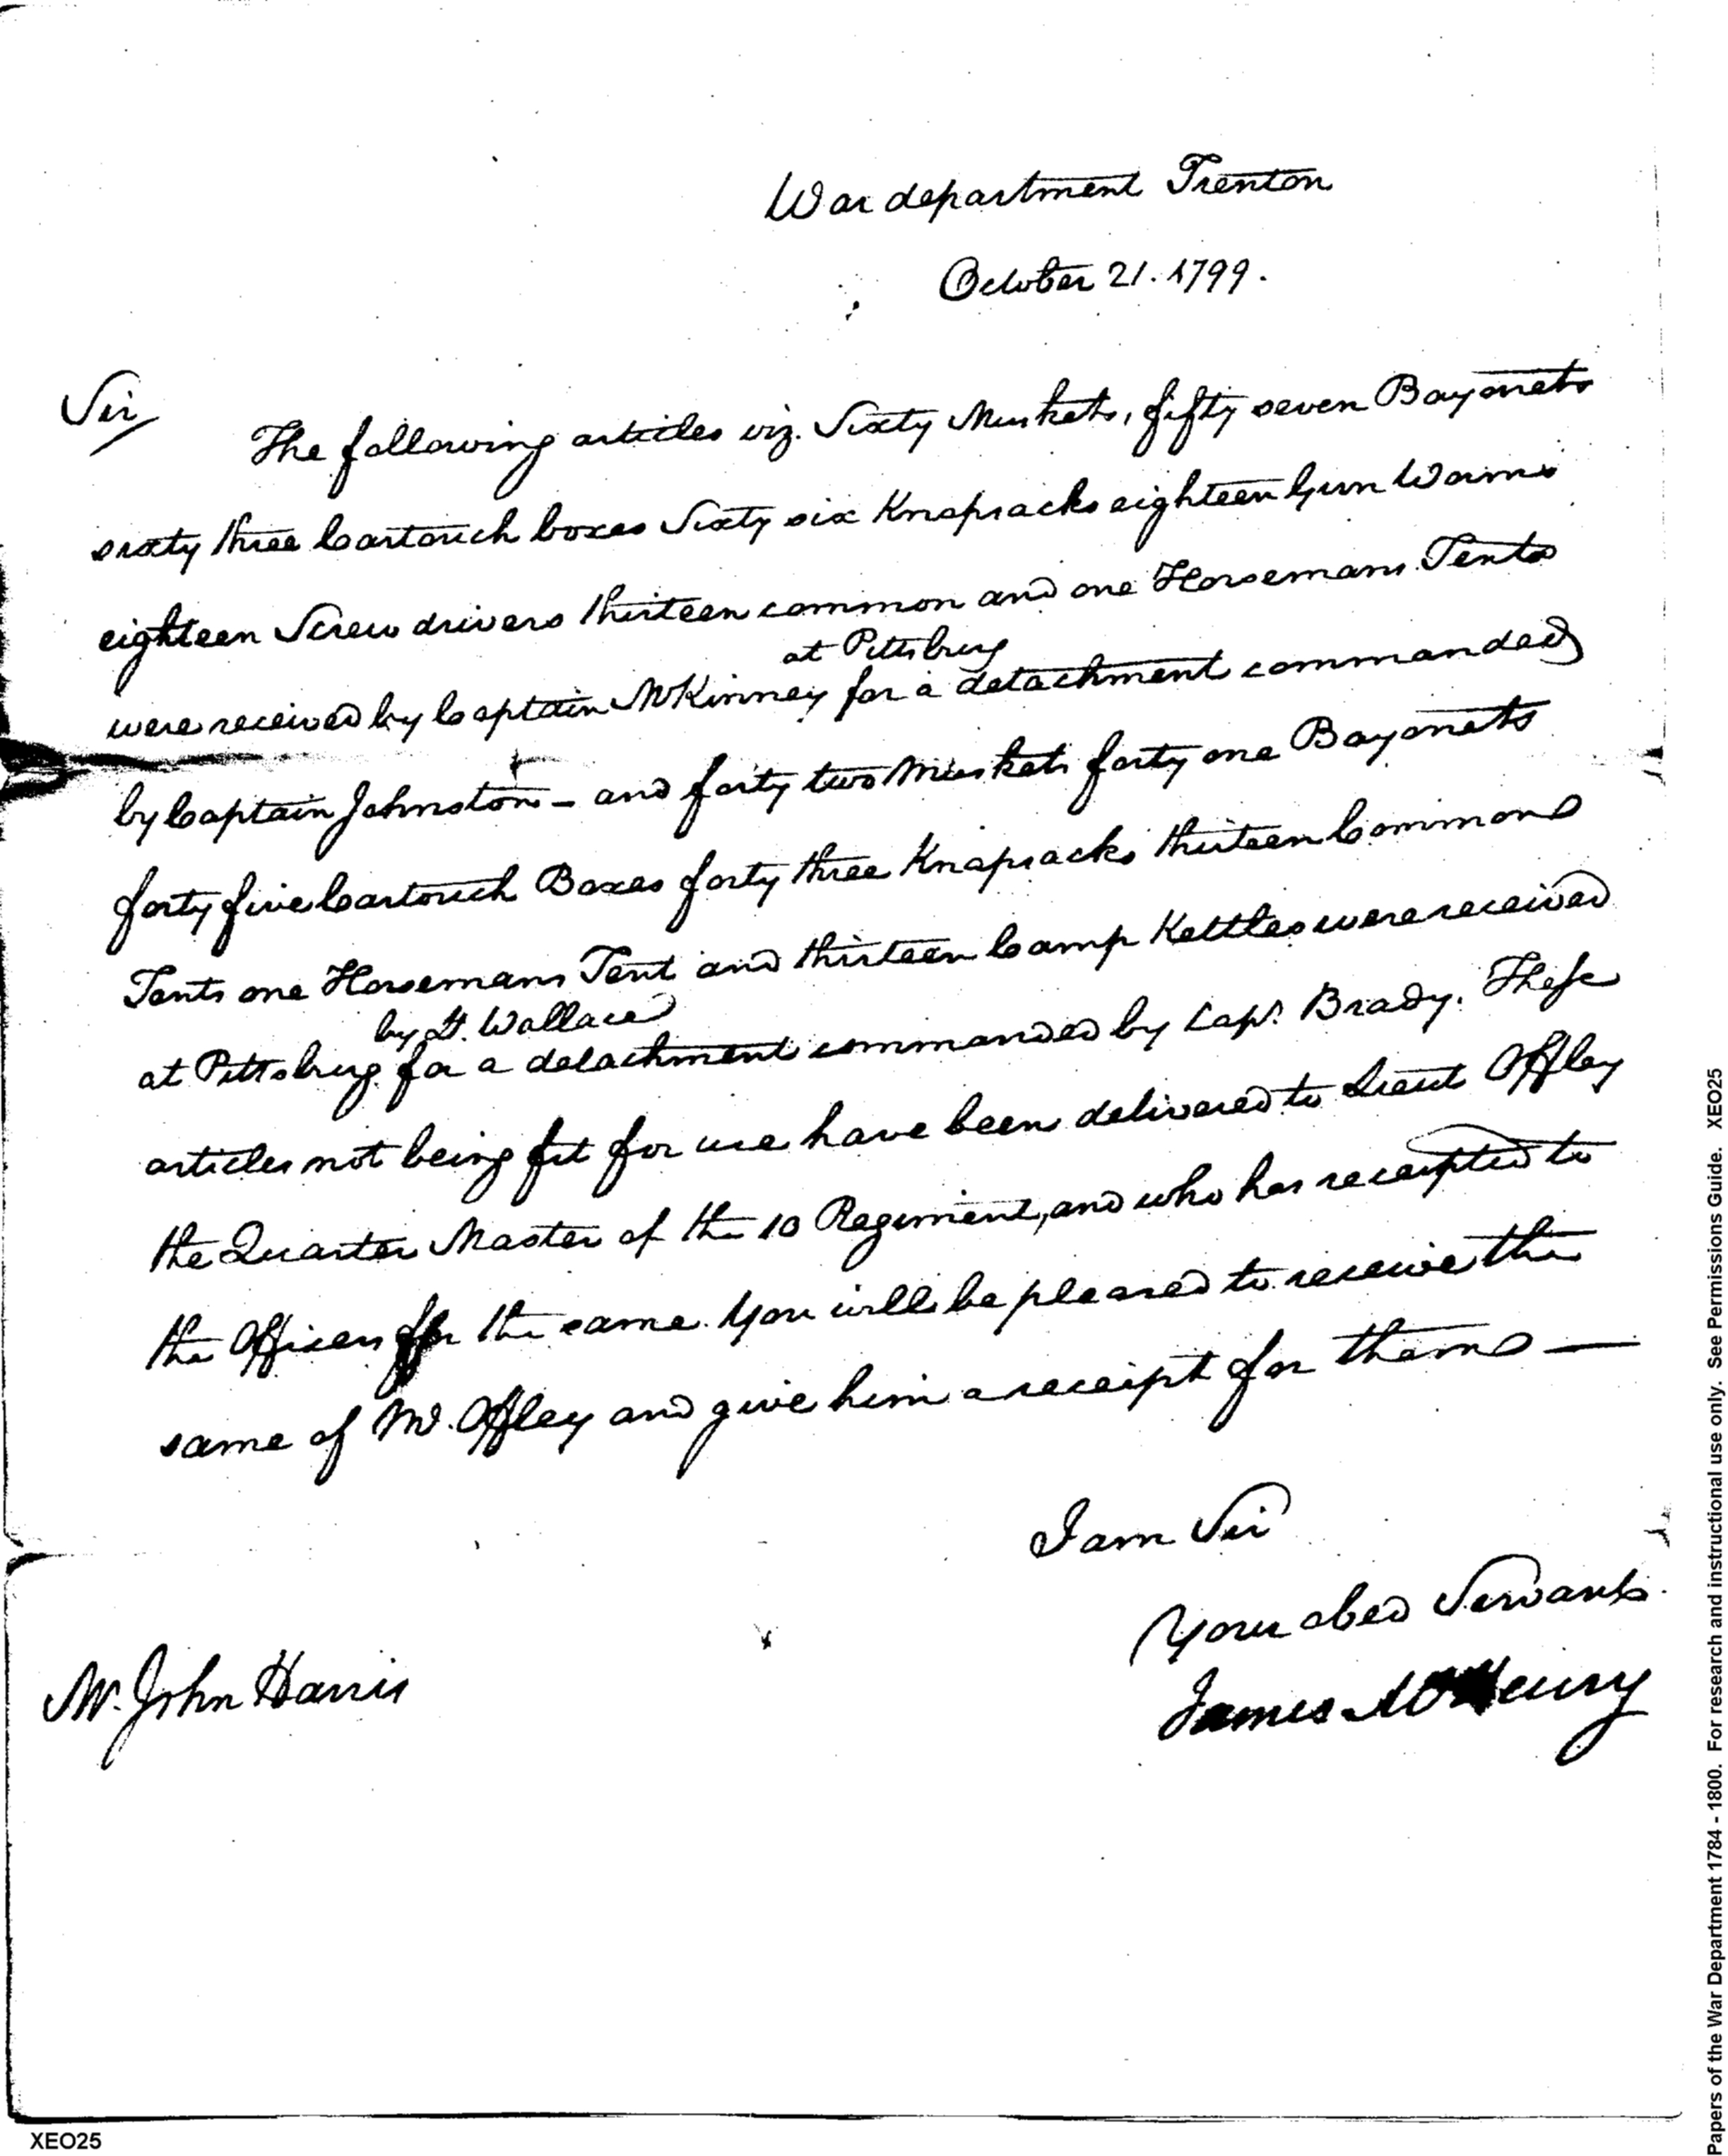 War department Trenton
October 21. 1799.
Sir
The following articles viz. Sixty Muskets, fifty seven Bayonets
sixty three Cartouch boxes Sixty six Knapsacks eighteen Gun Worms
eighteen Screw drivers thirteen common and one Horsemans Tents
at Pittsburg
were received by Captain McKinney for a detachment commanded
by Captain Johnston – and forty two Muskets forty one Bayonets
forty five Cartouch Boxes forty three Knapsacks thirteen Common
Tents one Horsemans Tent and thirteen Camp Kettles were received
by Lt. Wallace
at Pittsburg for a detachment commanded by Capt. Brady. These
articles not being fit for use have been delivered to Lieut Offley
the Quarter Master of the 10 Regiment, and who has receipted to
the Officers for the same. You will be pleased to receive the
same of Mr. Offley and give him a receipt for them —
I am Sir
Your obed Servant
James McHenry
Mr. John Harris
XEO25
Papers of the War Department 1784 - 1800. For research and instructional use only. See Permissions Guide. XEO25